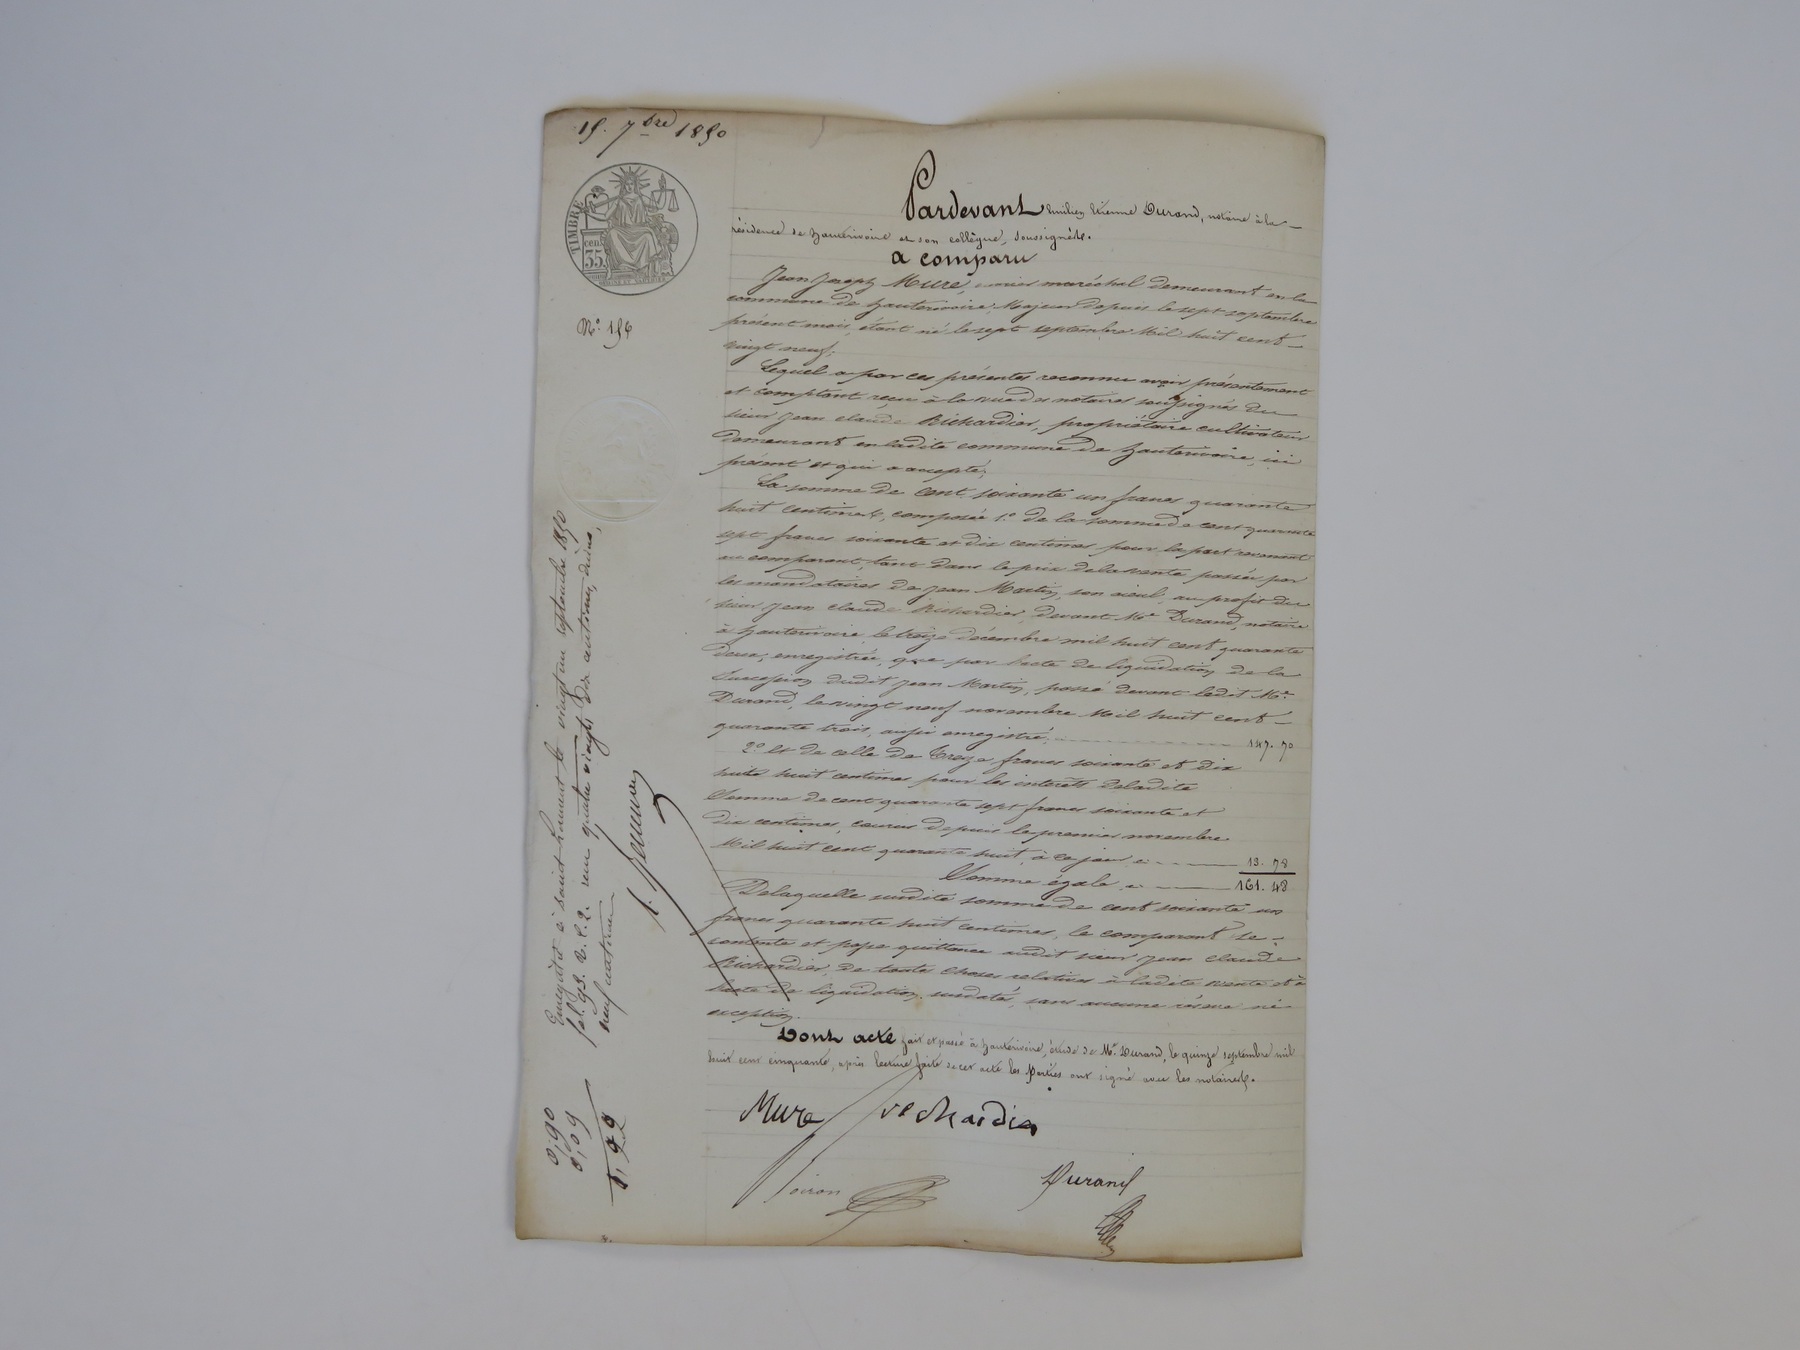 15. 7bre 1850
TIMBRE
cent
35
No. 156
Pardevant Emilien Etienne Durand, notaire à la
résidence de hauterivoire et son collègue, soussignés.
a comparu
Jean Joseph Mure, maréchal demeurant en la
commune de hauterivoire; Majeur depuis le sept septembre
présent mois, étant né le sept septembre Mil huit cent
vingt neuf;
Lequel a par ces présentes reconnu avoir présentement
et comptant reçu à la vue des notaires soussignés du
sieur Jean claude Richardier, propriétaire cultivateur
demeurant en ladite commune de hauterivoire, ici
présent et qui a accepté;
La somme de cent soixante un francs quarante
huit centimes, composée 1o. de la somme de cent quarante
sept francs soixante et dix centimes pour la part revenant
au comparant, tant dans le prix de la vente passée par
les mandataires de Jean Martin, son aieul, au profit du
sieur Jean claude Richardier, devant Me Durand, notaire
à hauterivoire le treize décembre mil huit cent quarante
deux, enregistrée, que par l'acte de liquidation de la
succession dudit Jean Martin, passé devant ledit Me
Durand, le vingt neuf novembre Mil huit cent
quarante trois, aussi enregistré, 147. 70
2o Et de celle de treize francs soixante et dix
huit centimes pour les intérêts deladite
somme de cent quarante sept francs soixante et
dix centimes, courus depuis le premier novembre
Mil huit cent quarante huit, à ce jour 13. 78
Somme égale 161. 48
De laquelle susdite somme de cent soixante un
francs quarante huit centimes, le comparant se
contente et passe quittance audit sieur Jean claude
Richardier, de toutes choses relatives à ladite vente et à
l'acte de liquidation susdatés, sans aucune réserve ni
exception.
Dont acte fait et passé à hauterivoire, étude de Me Durand, le quinze septembre mil
huit cent cinquante, après lecture faite de cet acte les Parties ont signé avec les notaires.
Mure Richardier
Durand
Enregistré à Saint Laurent le vingt un septembre 1850
fol. 93. V. C. 2. reçu quatre vingt dix centimes, décime,
neuf centimes
0,90
0,09
0,99